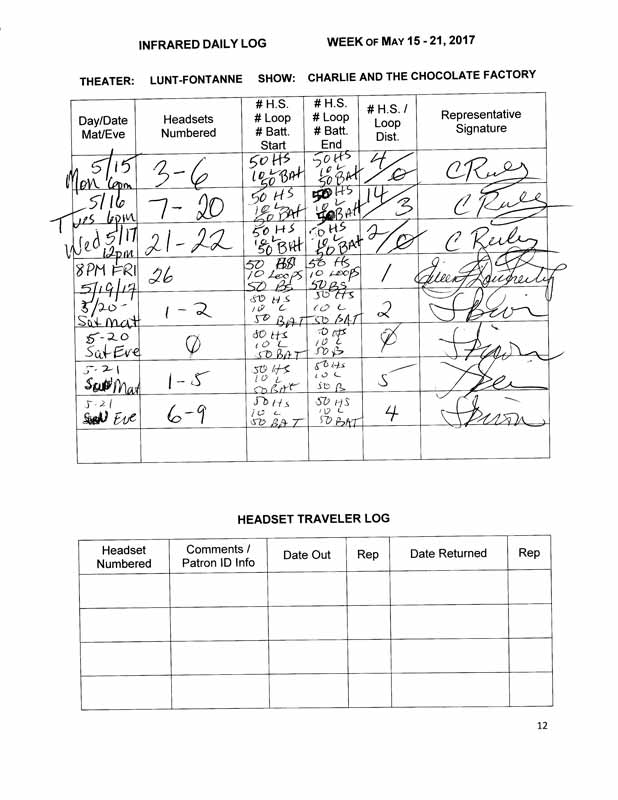 INFRARED DAILY LOG WEEK OF MAY 15 - 21, 2017
THEATER: LUNT-FONTANNE SHOW: CHARLIE AND THE CHOCOLATE FACTORY
Day/Date
Mat/Eve
Headsets
Numbered
# H.S.
# Loop
# Batt.
Start
# H.S.
# Loop
# Batt.
End
# H.S. /
Loop
Dist.
Representative
Signature
5/15
Mon 6pm
3-6
50 HS
10 L
50 BAT
50 HS
10 L
50 BAT
4/0
5/16
Tues 6pm
7-20
50 HS
10 L
50 BAT
50 HS
10 L
50 BAT
14/3
Wed 5/17
12pm
21-22
50 HS
10 L
50 BAT
50 HS
10 L
50 BAT
2/0
8PM FRI
5/19/17
26
50 HS
10 Loops
50 BS
50 HS
10 Loops
50 BS
1
5/20-
Sat Mat
1-2
50 HS
10 L
50 BAT
50 HS
10 L
50 BAT
2
5-20
Sat Eve
0
50 HS
10 L
50 BAT
50 HS
10 L
50 B
0
5-21
Sun Mat
1-5
50 HS
10 L
50 BAT
50 HS
10 L
50 B
5
5-21
Sun Eve
6-9
50 HS
10 L
50 BAT
50 HS
10 L
50 BAT
4
HEADSET TRAVELER LOG
Headset
Numbered
Comments /
Patron ID Info
Date Out
Rep
Date Returned
Rep
12